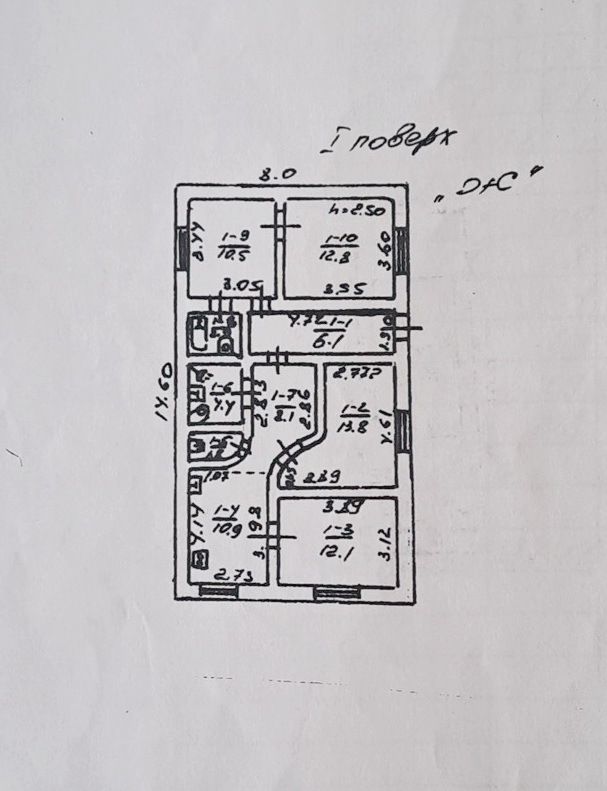 I поверх
8.0
„ЭtС"
h=2.50
1-9
10.5
3.44
1-10
12.8
3.60
3.05
3.55
4.72
1-1
6.1
14.60
1-6
4.4
1-7
8.1
2.86
2.77
1-2
13.8
4.61
1-5
1.07
2.89
1-4
10.9
4.14
2.73
3.89
1-3
12.1
3.12